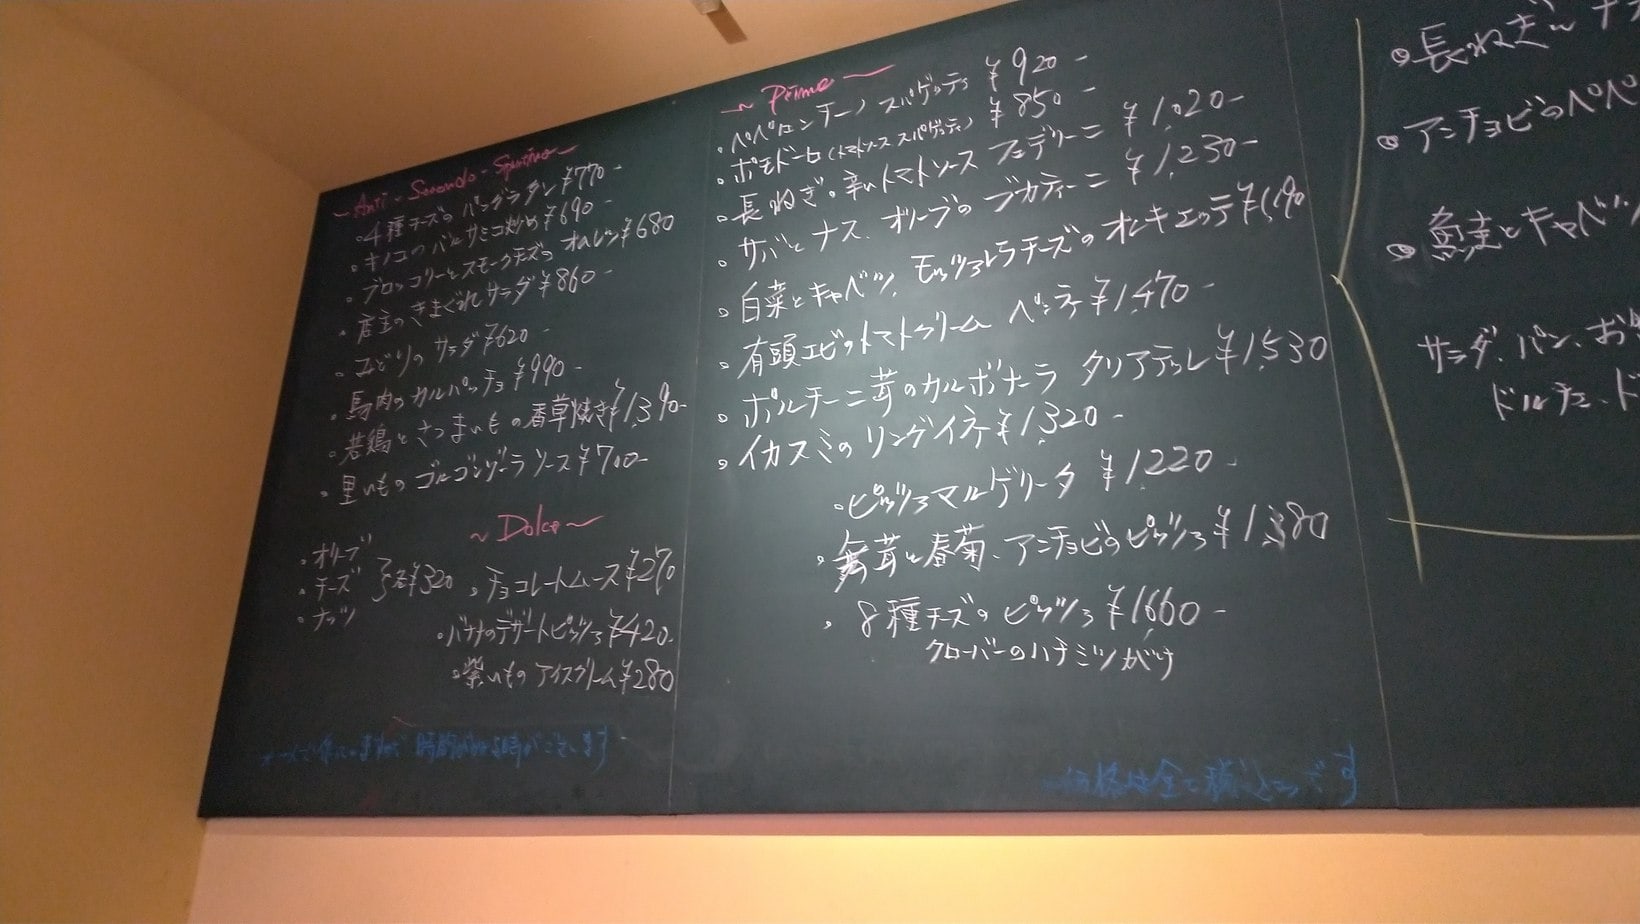 ~ Anti - Secondo - Spuntino ~
・4種チーズのパングラタン ¥770-
・キノコのバルサミコ炒め ¥690-
・ブロッコリーとスモークチーズのオムレツ ¥680
・店主のきまぐれサラダ ¥860-
・みどりのサラダ ¥620-
・馬肉のカルパッチョ ¥990-
・若鶏とさつまいもの香草焼き ¥1,390-
・里いものゴルゴンゾーラソース ¥700-
・オリーブ
・チーズ 各¥320
・ナッツ
~ Dolce ~
・チョコレートムース ¥270
・バナナのデザートピッツァ ¥420-
・紫いものアイスクリーム ¥280
~ Primo ~
・ペペロンチーノ スパゲッティ ¥920-
・ポモドーロ(トマトソース スパゲッティ) ¥850-
・長ねぎの辛いトマトソース フェデリーニ ¥1,020-
・サバとナス、オリーブのブカティーニ ¥1,230-
・白菜とキャベツ、モッツァレラチーズのオレキエッテ ¥1,190
・有頭エビのトマトクリーム ペンネ ¥1,470-
・ポルチーニ茸のカルボナーラ タリアテッレ ¥1,530
・イカスミのリングイネ ¥1,320-
・ピッツァマルゲリータ ¥1,220-
・舞茸と春菊、アンチョビのピッツァ ¥1,380
・8種チーズのピッツァ ¥1,660-
クローバーのハチミツがけ
時間がかかる時がございます
価格は全て税込です
・長ねぎ
・アンチョビのペペ
・魚圭とキャベツ
サラダ、パン、お
ドルチェ、ド